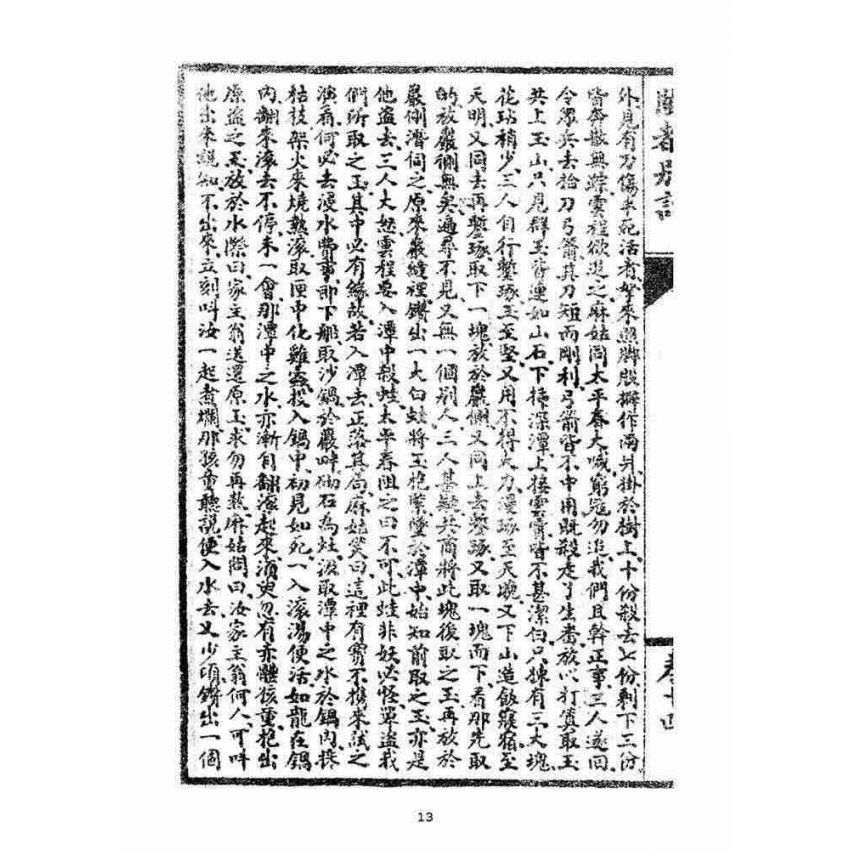 閩都別記
卷十四
外見有刀傷半死活者拏來照脚股擗作兩片掛於樹上十份殺去七份剩下三份
皆奔散無踪雲程欲追之麻姑同太平春大喊窮寇勿追我們且幹正事三人遂回
令眾兵去拾刀弓箭其刀短而剛利弓箭皆不中用既殺走了生番放心打算取玉
共上玉山只見群玉皆連如山石下插深潭上接雲霄皆不甚潔白只揀有三大塊
花玷稍少三人自行鑿琢玉至堅又用不得大力漫琢至天晚又下山造飯寢宿至
天明又同去再鑿琢取下一塊放於巖側又同上去鑿琢又取一塊而下看那先取
的放巖側無矣遍尋不見又無一個別人三人甚疑共商將此塊後取之玉再放於
巖側潛伺之原來巖縫裡鑽出一大白蛙將玉抱緊墜於潭中始知前取之玉亦是
他盜去三人大怒雲程要入潭中殺蛙太平春阻之曰不可此蛙非妖必怪單盜我
們所取之玉其中必有緣故若入潭去正落其局麻姑笑曰這裡有寶不携來試之
演看何必去浸水費事即下船取沙鍋於巖畔砌石為灶汲取潭中之水於鍋內採
枯枝架火來燒熟滾取匣中化雞蠡投入鍋中初見如死一入滾湯便活如龍在鍋
內翻來滾去不停未一會那潭中之水亦漸自翻滾起來須臾忽有赤體孩童抱出
原盜之玉放於水際曰家主翁送還原玉求勿再熬麻姑問曰汝家主翁何人可叫
他出來說知不出來立刻叫汝一起煮爛那孩童聽說便入水去又少頃鑽出一個
13